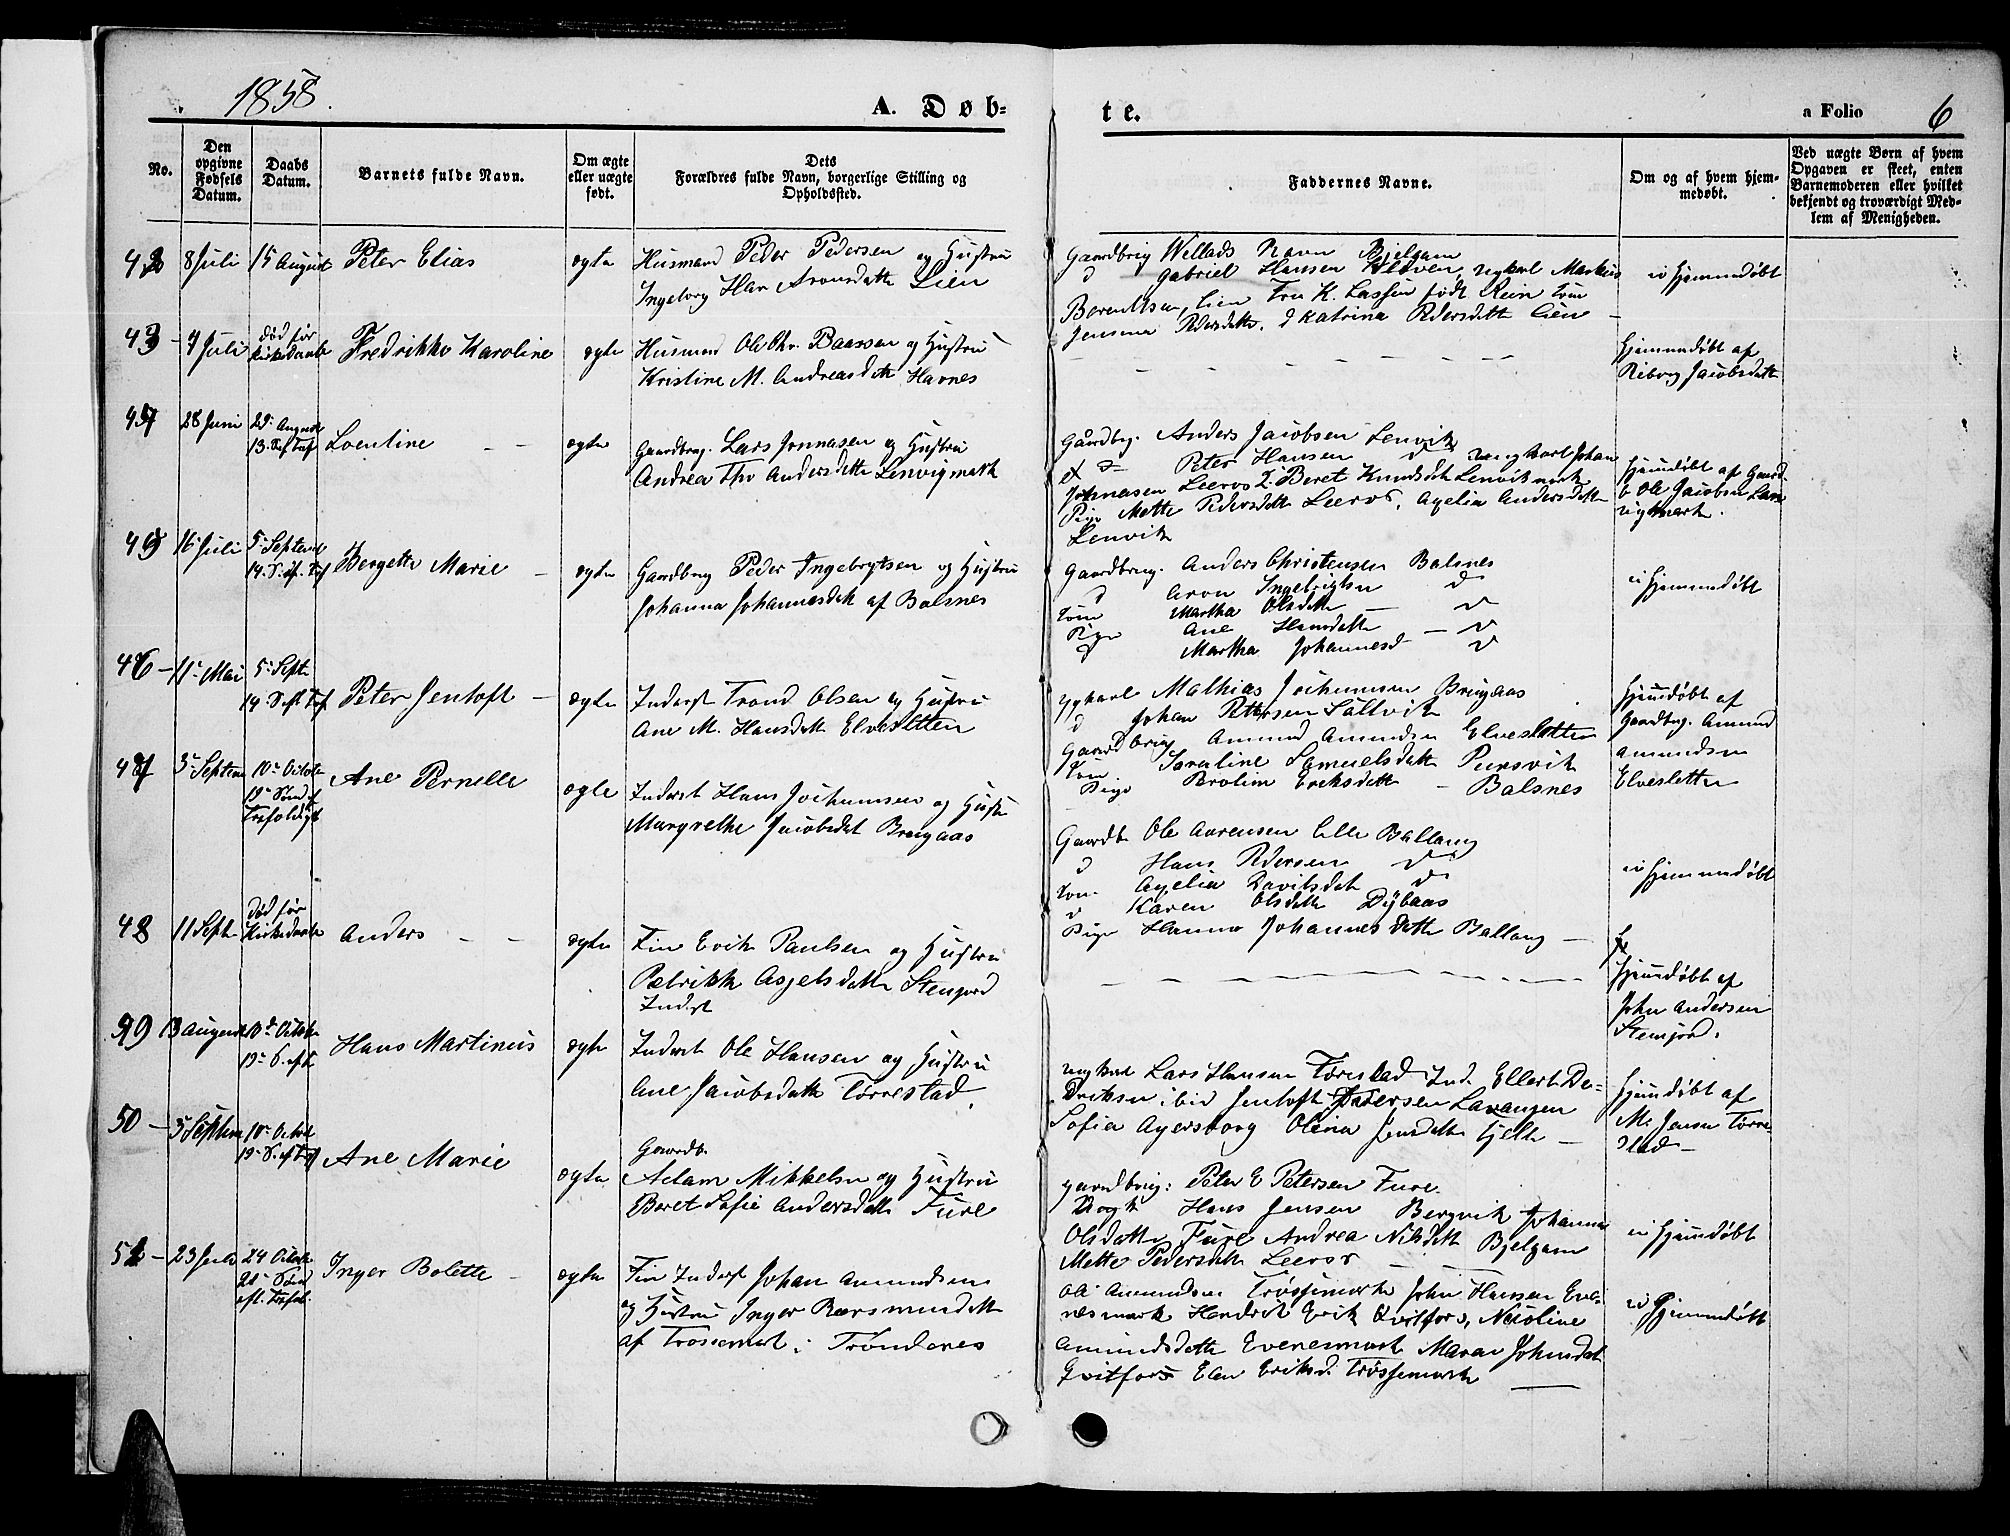 1858.
A. Døb-
te.
a Folio 6
No.
Den opgivne Fødsels Datum.
Daabs Datum.
Barnets fulde Navn.
Om ægte eller uægte født.
Dets Forældres fulde Navn, borgerlige Stilling og Opholdssted.
Faddernes Navne.
Om og af hvem hjemmedøbt.
Ved uægte Børn af hvem Opgaven er skeet, enten Barnemoderen eller hvilket bekjendt og troværdigt Medlem af Menigheden.
42 8 Juli 15 August Peter Elias ægte Husmand Peder Pedersen og Hustru
Ingeborg Han Aronsdatte Lien
Gaardbrug Wellads Ravn Bjelgam
d Gabriel Hansen Kleven, ungkarl Markus
Berentsen, Lien Fru K. Lassen født Rein
Jensina Pedersdatte. d Katrina Pedersdatte Lien
ei hjemmedøbt
43 7 Juli død før Kirkedaab Fredrikke Karoline ægte Husmand Ole Chr. Baassen og Hustru
Kristine M. Andreasdatte Havnes
hjemmedøbt af
Riborg Jacobsdatte
44 28 Juni 29 August
13. S. ef Tref Loentine ægte Gaardbrug. Lars Jonnasen og Hustru
Andrea Andersdatte Lenvigmark
Gaardbg. Anders Jacobsen Lenvik
Peter Hansen d ungkarl Johan
Johnasen Leeros Beret Knudsdatte Lenvikmark
Pige Mette Pedersdatte Leeros, Agelia Andersdatte
Lenvik
hjemdøbt af Gaard
b Ole Jacobsen Len
vigmark.
45 16 Juli 5 Septemb
14. S. ef. Tref Bergette Marie ægte Gaardbrug Peder Ingebrigtsen og Hustru
Johanna Johannesdatte af Balsnes
Gaardbrug. Anders Christensen Balsnes
d Aron Ingebrigtsen d
Kone Martha Olsdatte d
Pige Ane Hansdatte d
d Martha Johannesd d
ei hjemmedøbt
46 11 Mai 5 Sept
14. S. ef Tref Peter Jentoft ægte Inderst Trond Olsen og Hustru
Ane M. Hansdatte Elvesletten
ygkarl Mathias Jochumsen Brugaas
d Johan Pettersen Sallvik
Gaardbrug Amund Amundsen Elvesletten
Kone Karoline Samuelsdatte Pursvik
Pige Parolim Eriksdatte Balsnes
hjemdøbt af
Gaardbrug. Amund
Amundsen
Elvesletten
47 3 Septem 10 Octob
19 Sønd ef
Trefoldigh Ane Pernelle ægte Inderst Hans Jochumsen og Hustru
Margrethe Jacobsdat Brugaas
Gaardb. Ole Aarensen Lille Ballang
d Hans Pedersen d
Kon. Agelia Davidsdat d
d Karen Olsdatte Dybaas
Pige Hanna Johannesdatte Ballang
ei hjemmedøbt
48 11 Sept død før
Kirkedaab Anders ægte Fin Erik Paulsen og Hustru
Pelrikk Asjelsdatte Stenjord
Inderst
hjemdøbt af
John Andersen
Stenjord.
49 13 August 10 Octob
19 S. eft Hans Martinus ægte Inderst Ole Hansen og Hustru
Ane Jacobsdatte Tørrestad
ungkarl Lars Hansen Tørrestad Ind. Ellert De-
driksen ibid Jentoft Andersen Lavangen
Sofia Agersborg Olena Jensdatte Fjelle
hjemdøbt af
M. Jensen Tørre
stad
50 5 Septem 10 Octob
19 S. ef Tref Ane Marie ægte Gaardb.
Adam Mikkelsen og Hustru
Beret Sofie Andersdatte Fure
gaardbrug: Peter E Petersen Fure.
Hans Jensen Bergvik Johanna
Olsdatte Fure Andrea Nilsdatte Bjelgam
Mette Pedersdatte Leeros
ei hjemdøbt
51 23 Juli 24 Octob
21 Sønd
eft. Trefol. Inger Bolette ægte Fin Inderst Johan Amundsen
og Hustru Inger Rasmusdatte
af Trossemark i Trondenes
Ole Amundsen Trøssemark John Hansen Eve-
nesmark Hendrik Erik Qvitfors, Nicoline
Amundsdatte Evenesmark Maren Johnsdat
Qvitfors Elen Eriksd. Trøssemark
ei hjemmedøbt